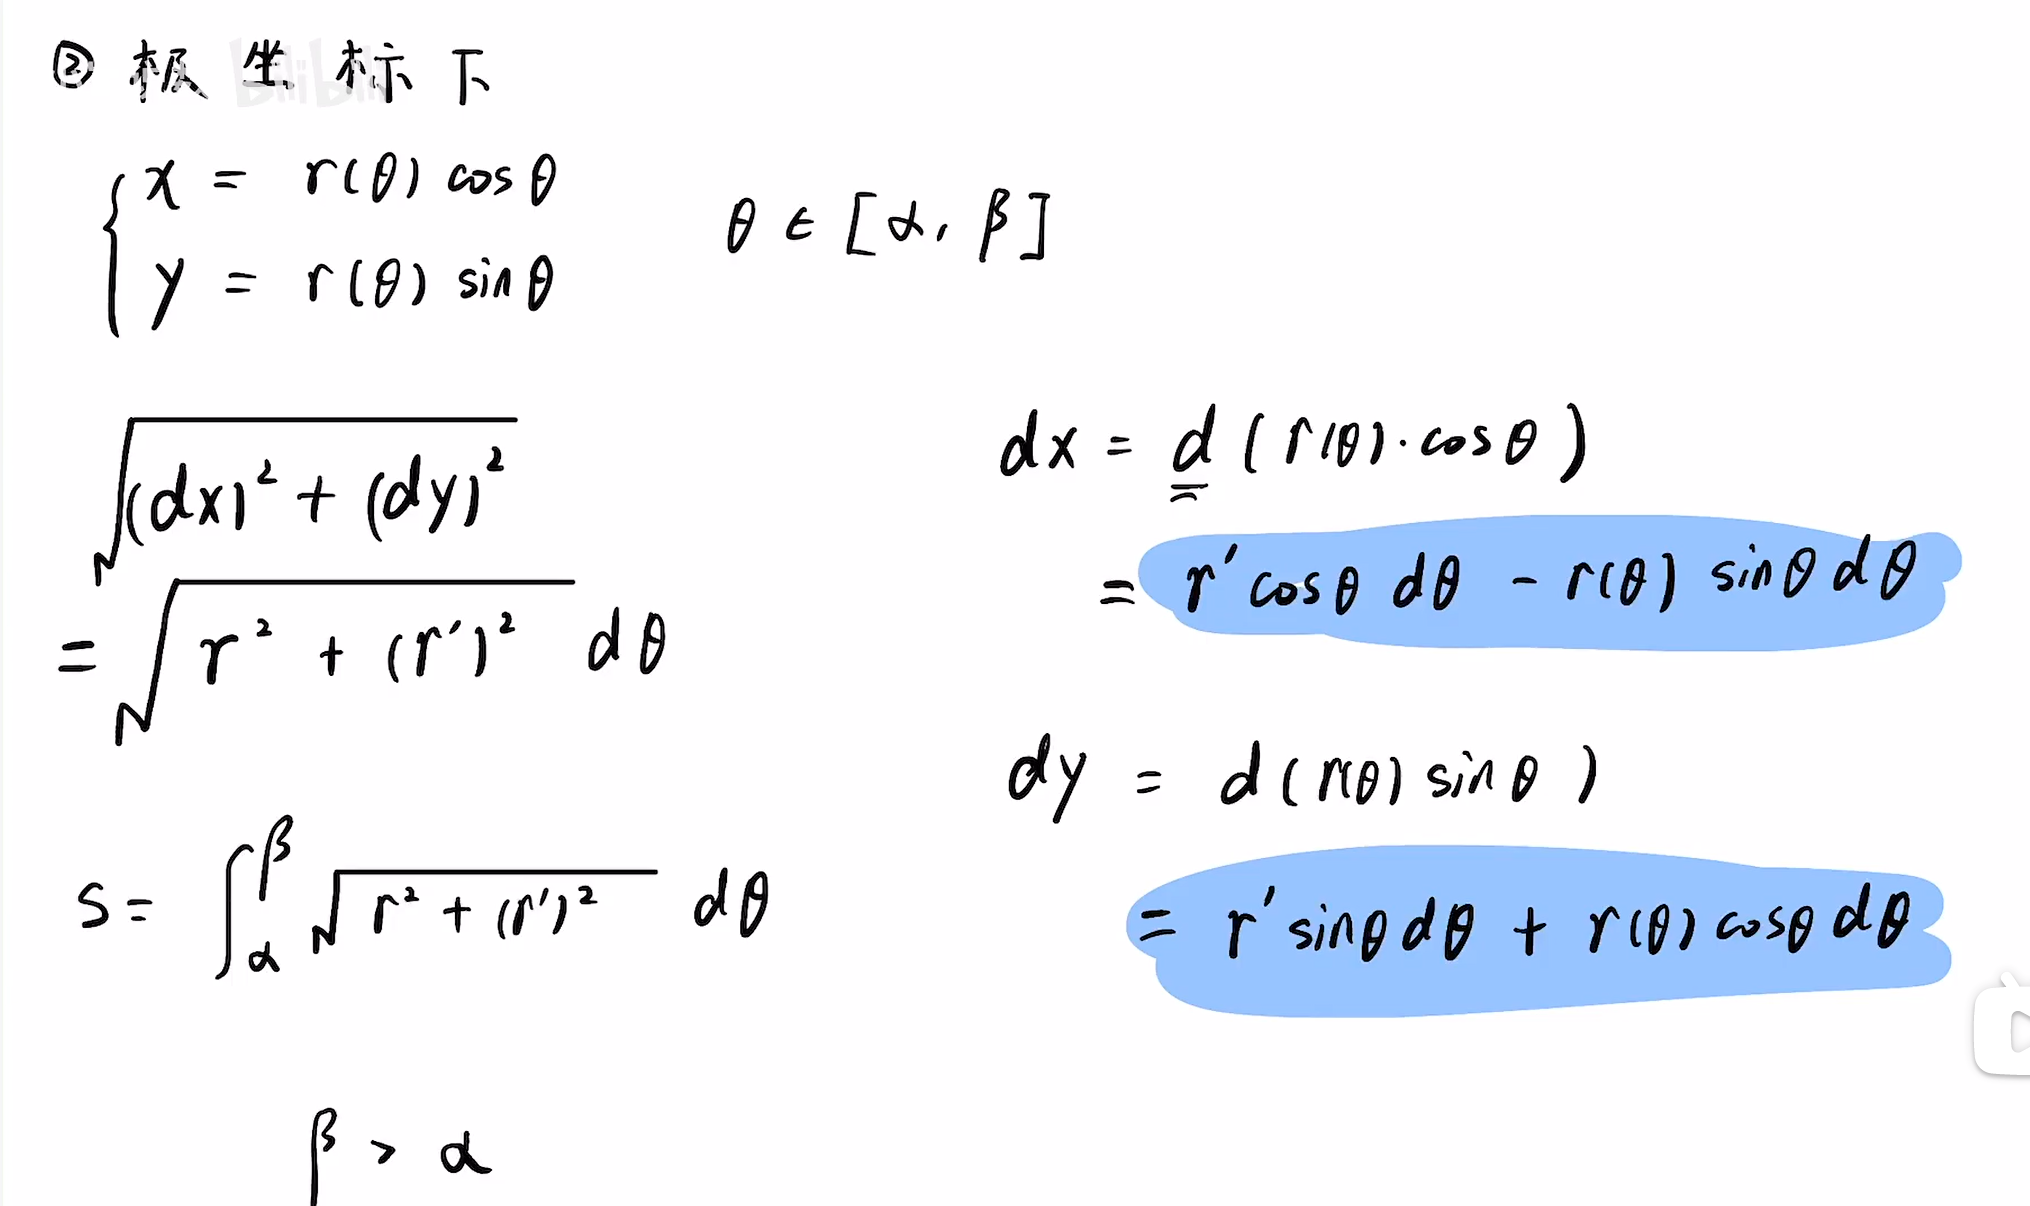 ② 极坐标下
x = r(θ) cosθ
θ ∈ [α, β]
y = r(θ) sinθ
√((dx)² + (dy)²)
= √(r² + (r′)²) dθ
S = ∫_α^β √(r² + (r′)²) dθ
β > α
dx = d(r(θ)·cosθ)
= r′cosθ dθ - r(θ) sinθ dθ
dy = d(r(θ) sinθ)
= r′sinθ dθ + r(θ) cosθ dθ
bilibili